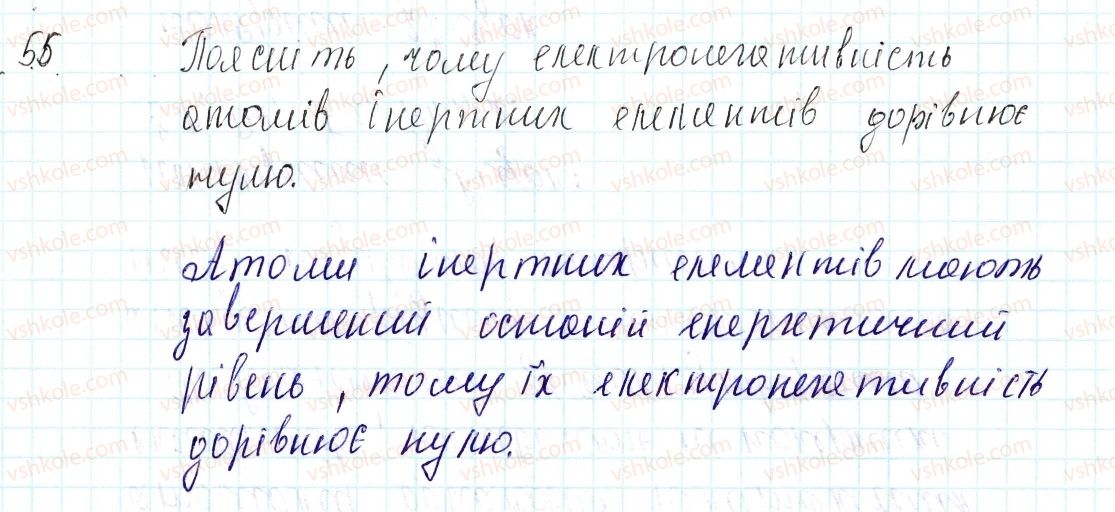 55
Поясніть, чому електронегативність
атомів інертних елементів дорівнює
нулю.
Атоми інертних елементів мають
завершений останій енергетичний
рівень, тому їх електронегативність
дорівнює нулю.